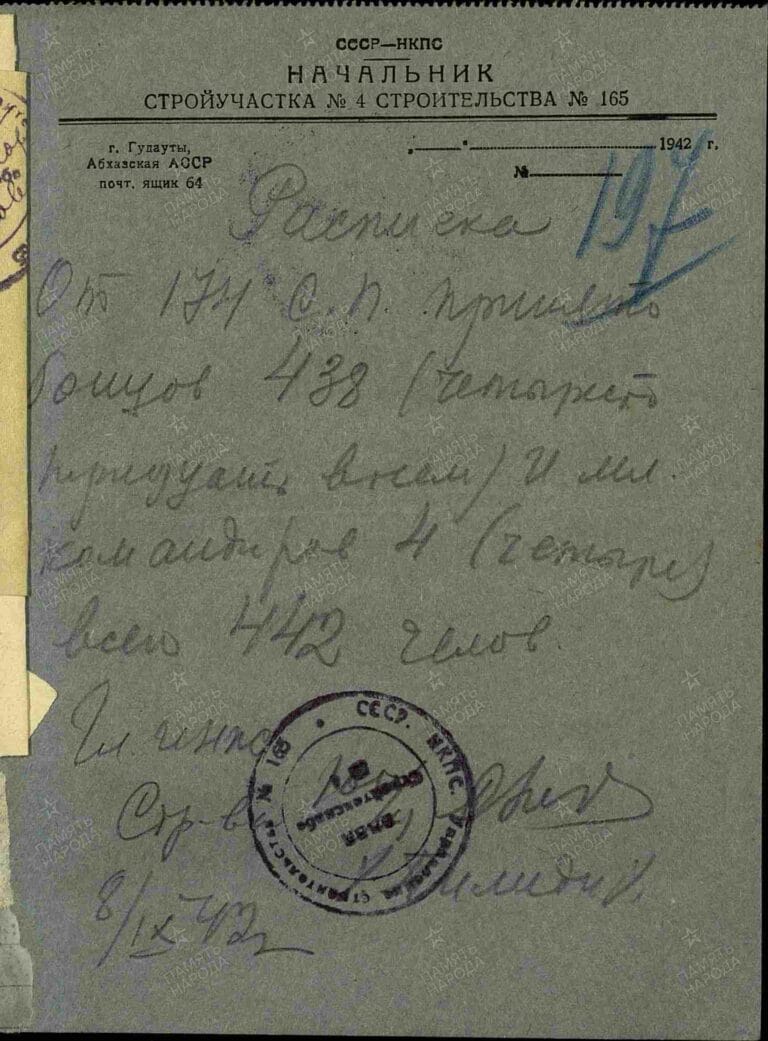 СССР—НКПС
НАЧАЛЬНИК
СТРОЙУЧАСТКА № 4 СТРОИТЕЛЬСТВА № 165
г. Гудауты,
Абхазская АССР
почт. ящик 64
„ “ 1942 г.
№
197
Расписка
От 174 С.П. принято
бойцов 438 (четыреста
тридцать восем) и мл.
командиров 4 (четыре)
всего 442 челов.
Гл. инж
Стр-ва 165
СССР. НКПС. Управление строительства № 165
8/IX 42г
ПАМЯТЬ НАРОДА